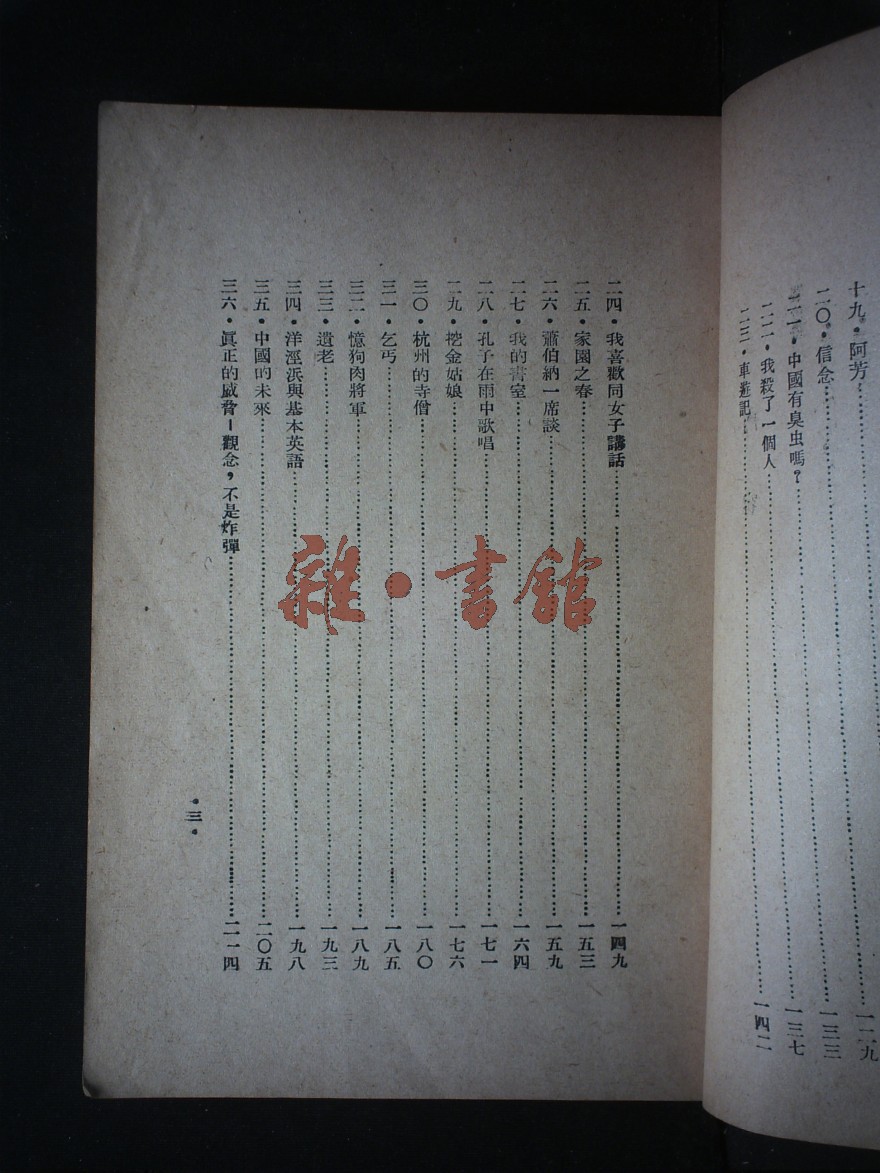 十九・阿芳……一二九
二〇・信念……一三三
二一・中國有臭虫嗎？……一三七
二二・我殺了一個人……
二三・車遊記……一四二
二四・我喜歡同女子講話……一四九
二五・家園之春……一五三
二六・蕭伯納一席談……一五九
二七・我的書室……一六四
二八・孔子在雨中歌唱……一七一
二九・挖金姑娘……一七六
三〇・杭州的寺僧……一八〇
三一・乞丐……一八五
三二・憶狗肉將軍……一八九
三三・遺老……一九三
三四・洋涇浜與基本英語……一九八
三五・中國的未來……二〇五
三六・眞正的威脅－觀念，不是炸彈……二一四
・三・
雜・書館